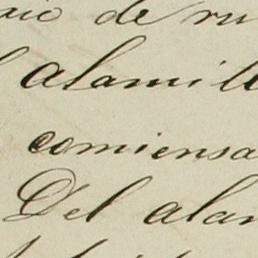 de ru
alamill
comiensa
Del alam